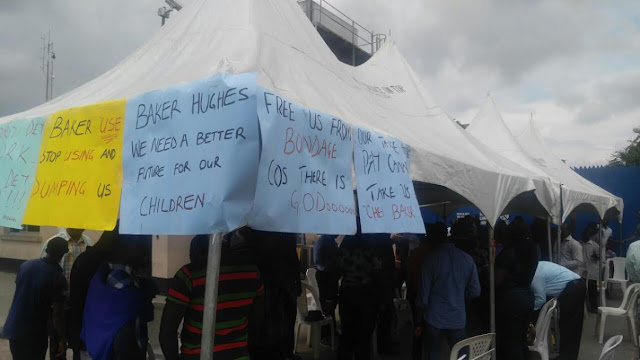 BAKER USE
STOP USING AND
DUMPING US
BAKER HUGHES
WE NEED A BETTER
FUTURE FOR OUR
CHILDREN
FREE US FROM
BONDAGE
COS THERE IS
GODoooooo
OUR TAKE
PAY CAN
TAKE US